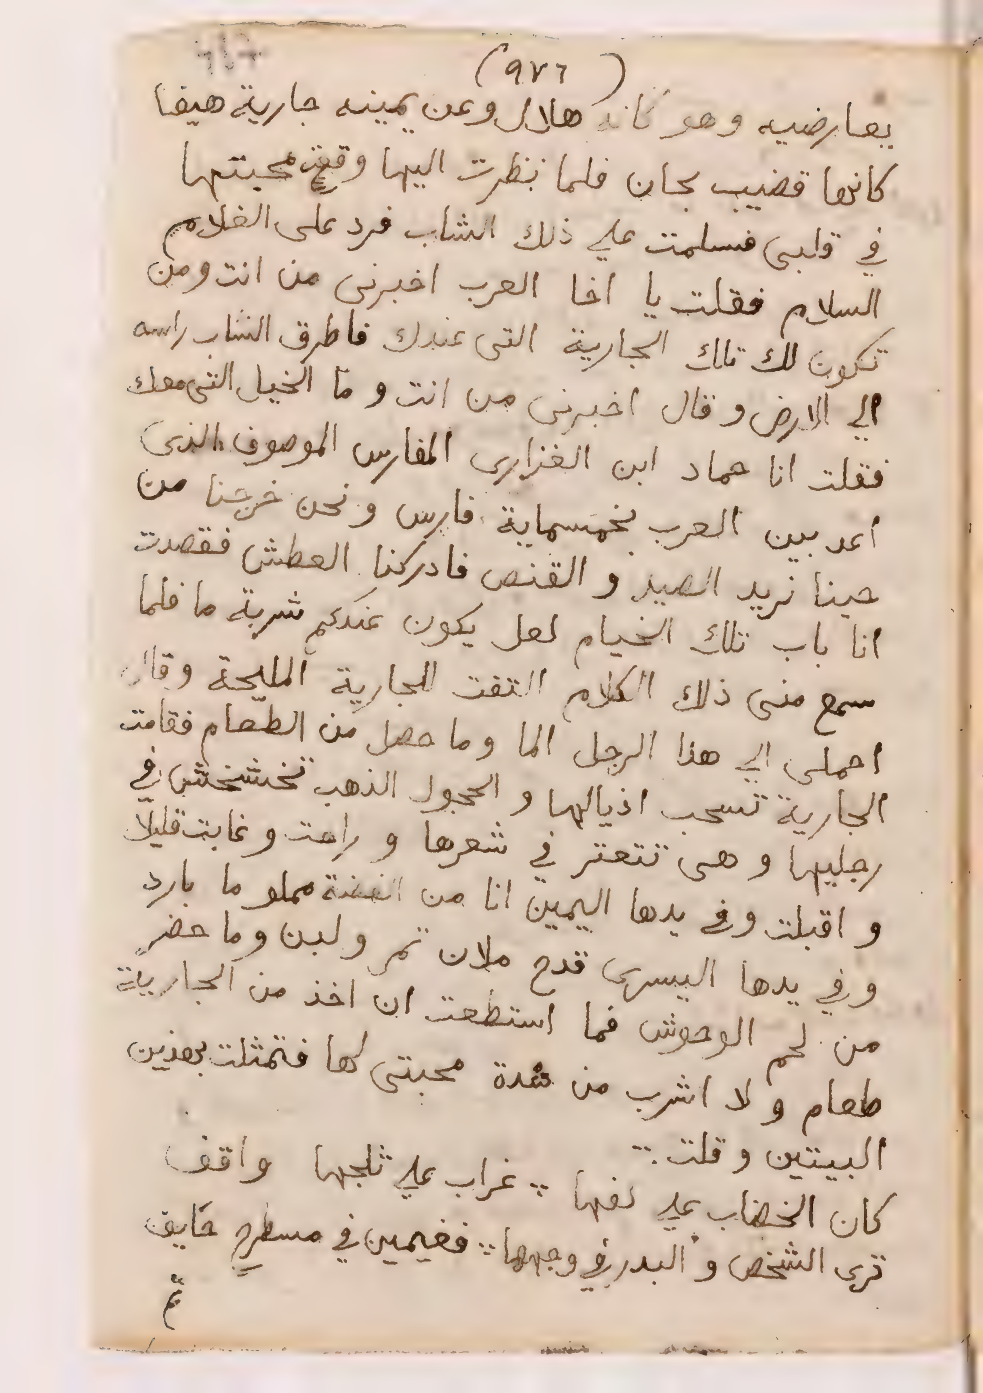 (٩٧٦)
بعارضيه وهو كانه هلال وعن يمينه جارية هيفا
كانها قضيب بجان فلما نظرت اليها وقع محبتها
في قلبي فسلمت علي ذلك الشاب فرد على الغلام
السلام فقلت يا اخا العرب اخبرني من انت ومن
تكون لك تلك الجارية التى عندك فاطرق الشاب راسه
الي الارض و قال اخبرنى من انت و ما الخيل التى معك
فقلت انا حماد ابن الفزارى الفارس الموصوف الذى
اعد بين العرب بخمسماية فارس و نحن خرجنا من
حينا نريد الصيد و القنص فادركنا العطش فقصدت
انا باب تلك الخيام لعل يكون عندكم شربة ما فلما
سمع منى ذلك الكلام التفت للجارية المليحة وقال
احملى الي هذا الرجل الما وما حصل من الطعام فقامت
الجارية تسحب اذيالها و الحجول الذهب تخشخش في
رجليها و هى تتعتر في شعرها و راحت و غابت قليلا
و اقبلت وفي يدها اليمين انا من الفضة مملو ما بارد
و في يدها اليسرى قدح ملان تمر و لبن و ما حضر
من لحم الوحوش فما استطعت ان اخذ من الجارية
طعام و لا اشرب من شدة محبتى لها فتمثلت بهذين
البيتين و قلت ∴
كان الخضاب علي كفها ∴ غراب علي ثلجها واقف
ترى الشخص و البدر في وجهها ∴ فغيمين في مسطح خايف